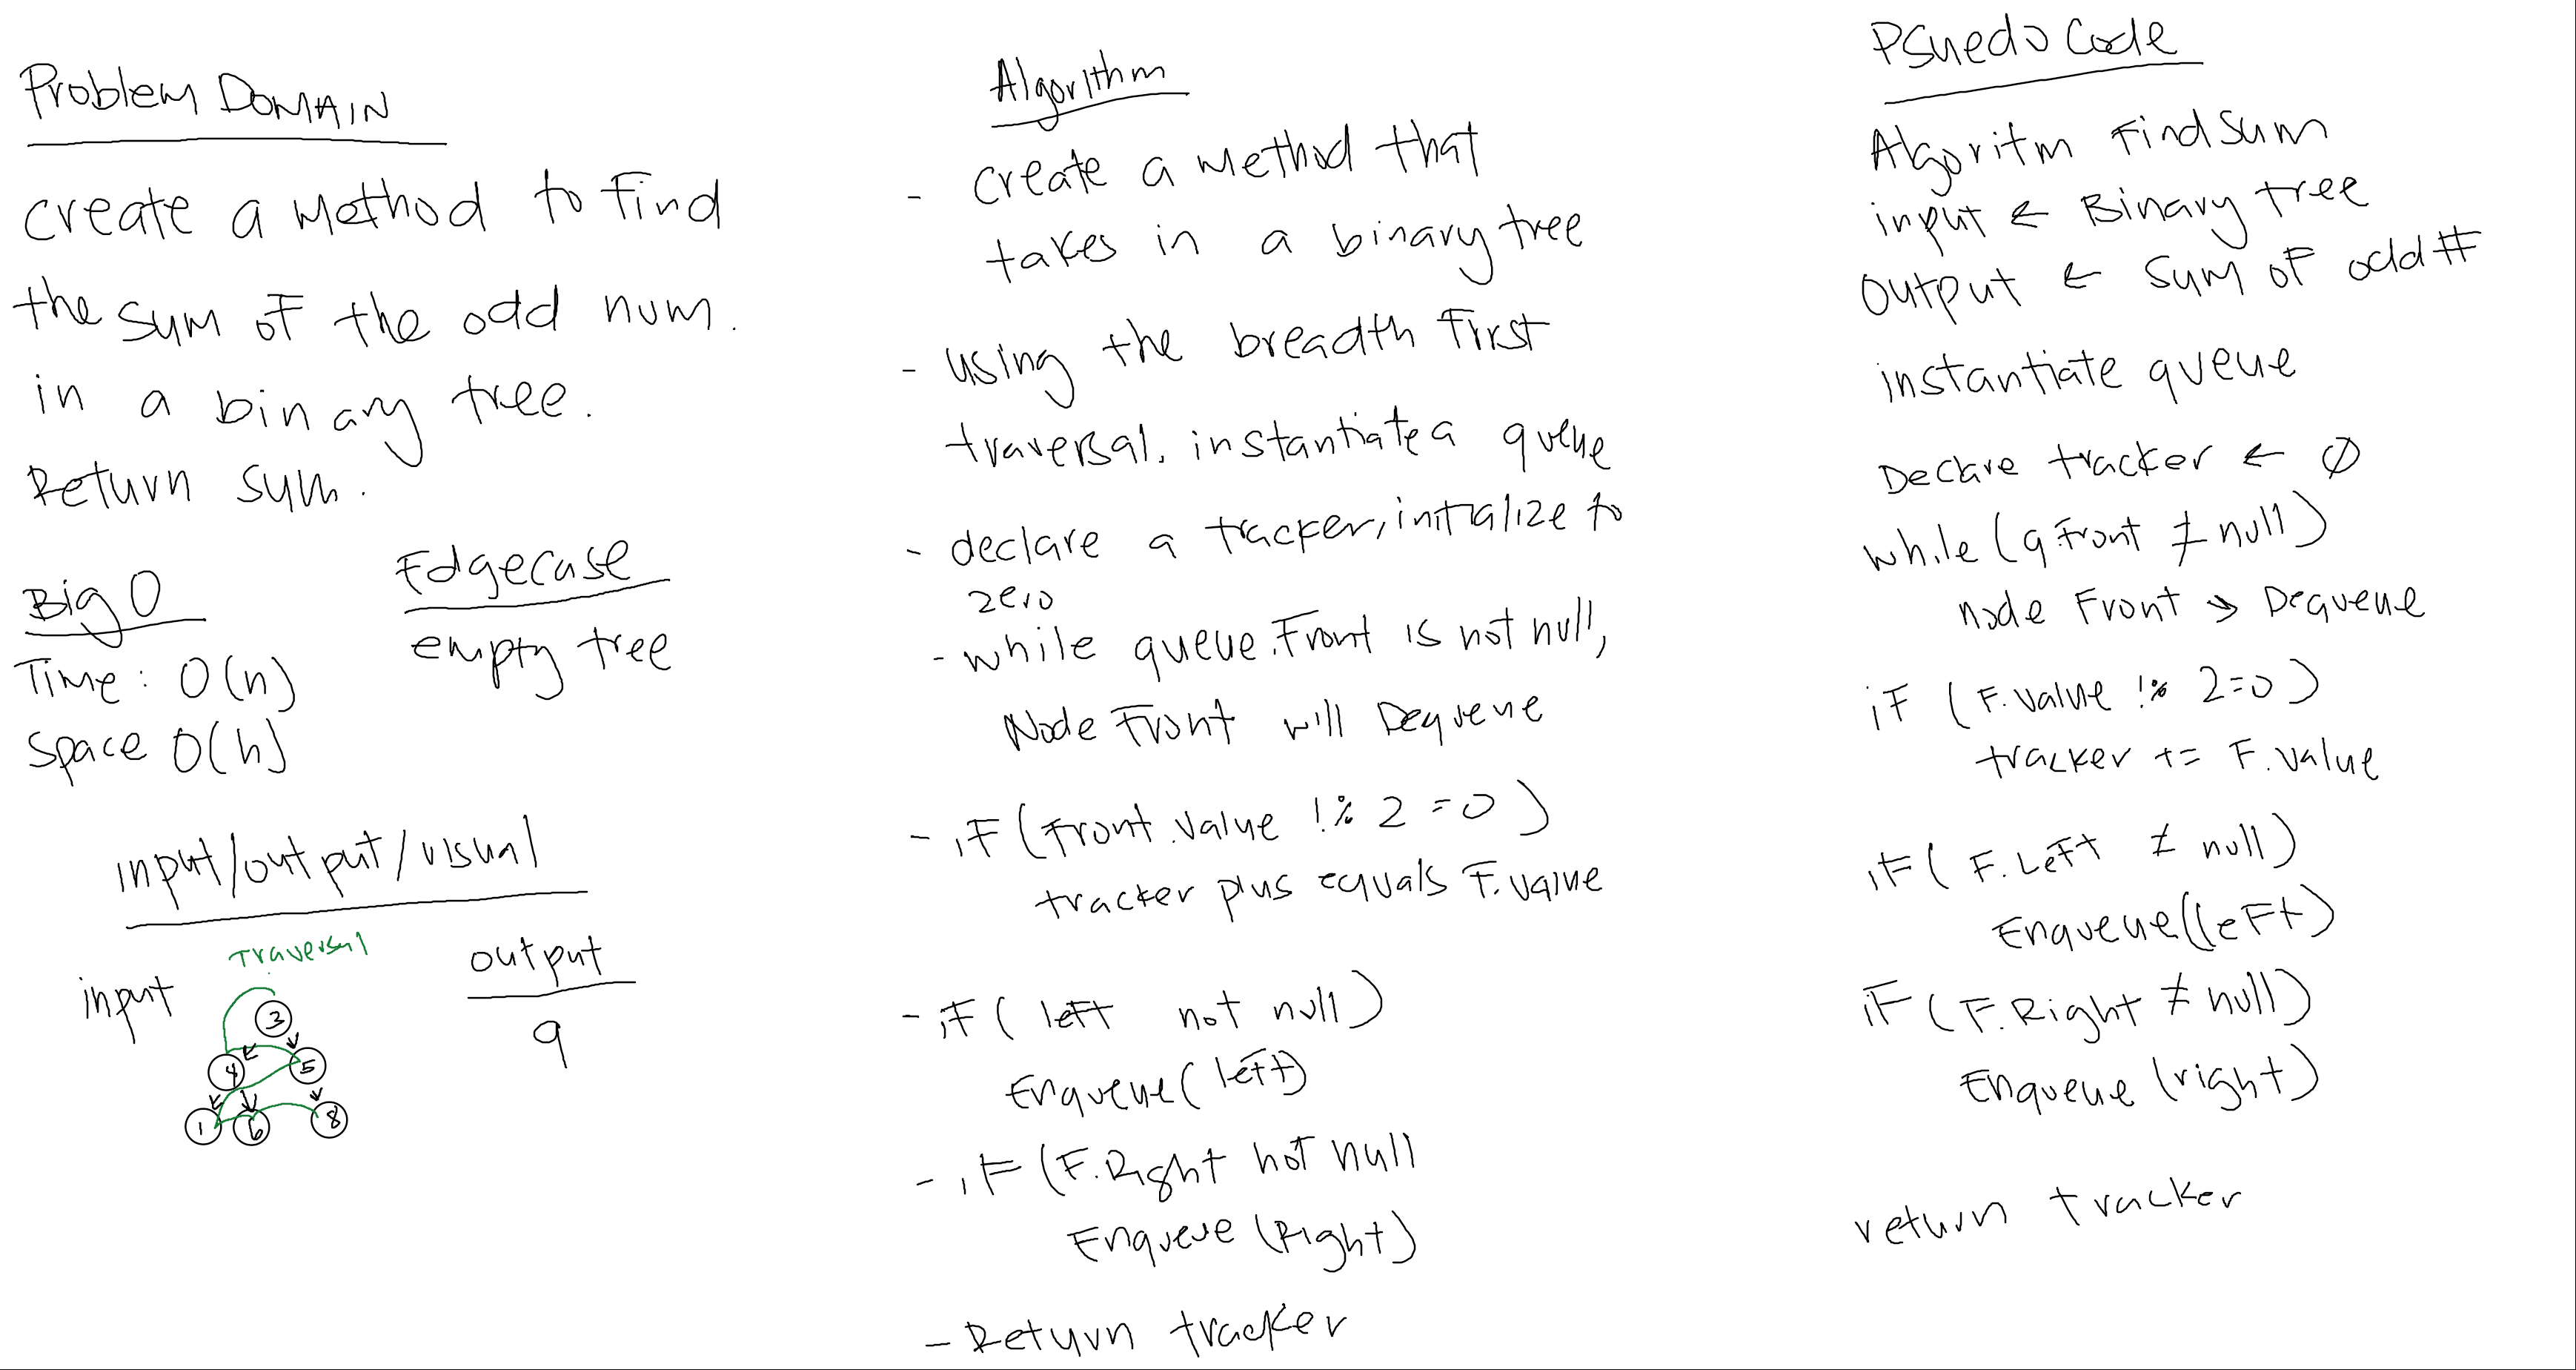 Problem DOMAIN
create a method to find
the sum of the odd num.
in a binary tree.
Return sum.
Big O
Time: O(n)
Space O(h)
Edgecase
empty tree
input/output/visual
Traversal
input
3
4 5
1 6 8
output
9
Algorithm
- create a method that
takes in a binary tree
- using the breadth first
traversal. instantiate a queue
- declare a tracker, initialize to
zero
- while queue.Front is not null,
Node Front will Dequeue
- if (Front.value !% 2 = 0)
tracker plus equals F.value
- if ( left not null)
Enqueue(left)
- if (F.Right not null
Enqueue (Right)
- Return tracker
PSuedo Code
Algoritm FindSum
input ← Binary tree
Output ← Sum of odd #
instantiate queue
Declare tracker ← ∅
while (q front ≠ null)
node Front → Dequeue
if (F.value !% 2=0)
tracker += F.value
if( F.Left ≠ null)
Enqueue(left)
if (F.Right ≠ null)
Enqueue (right)
return tracker